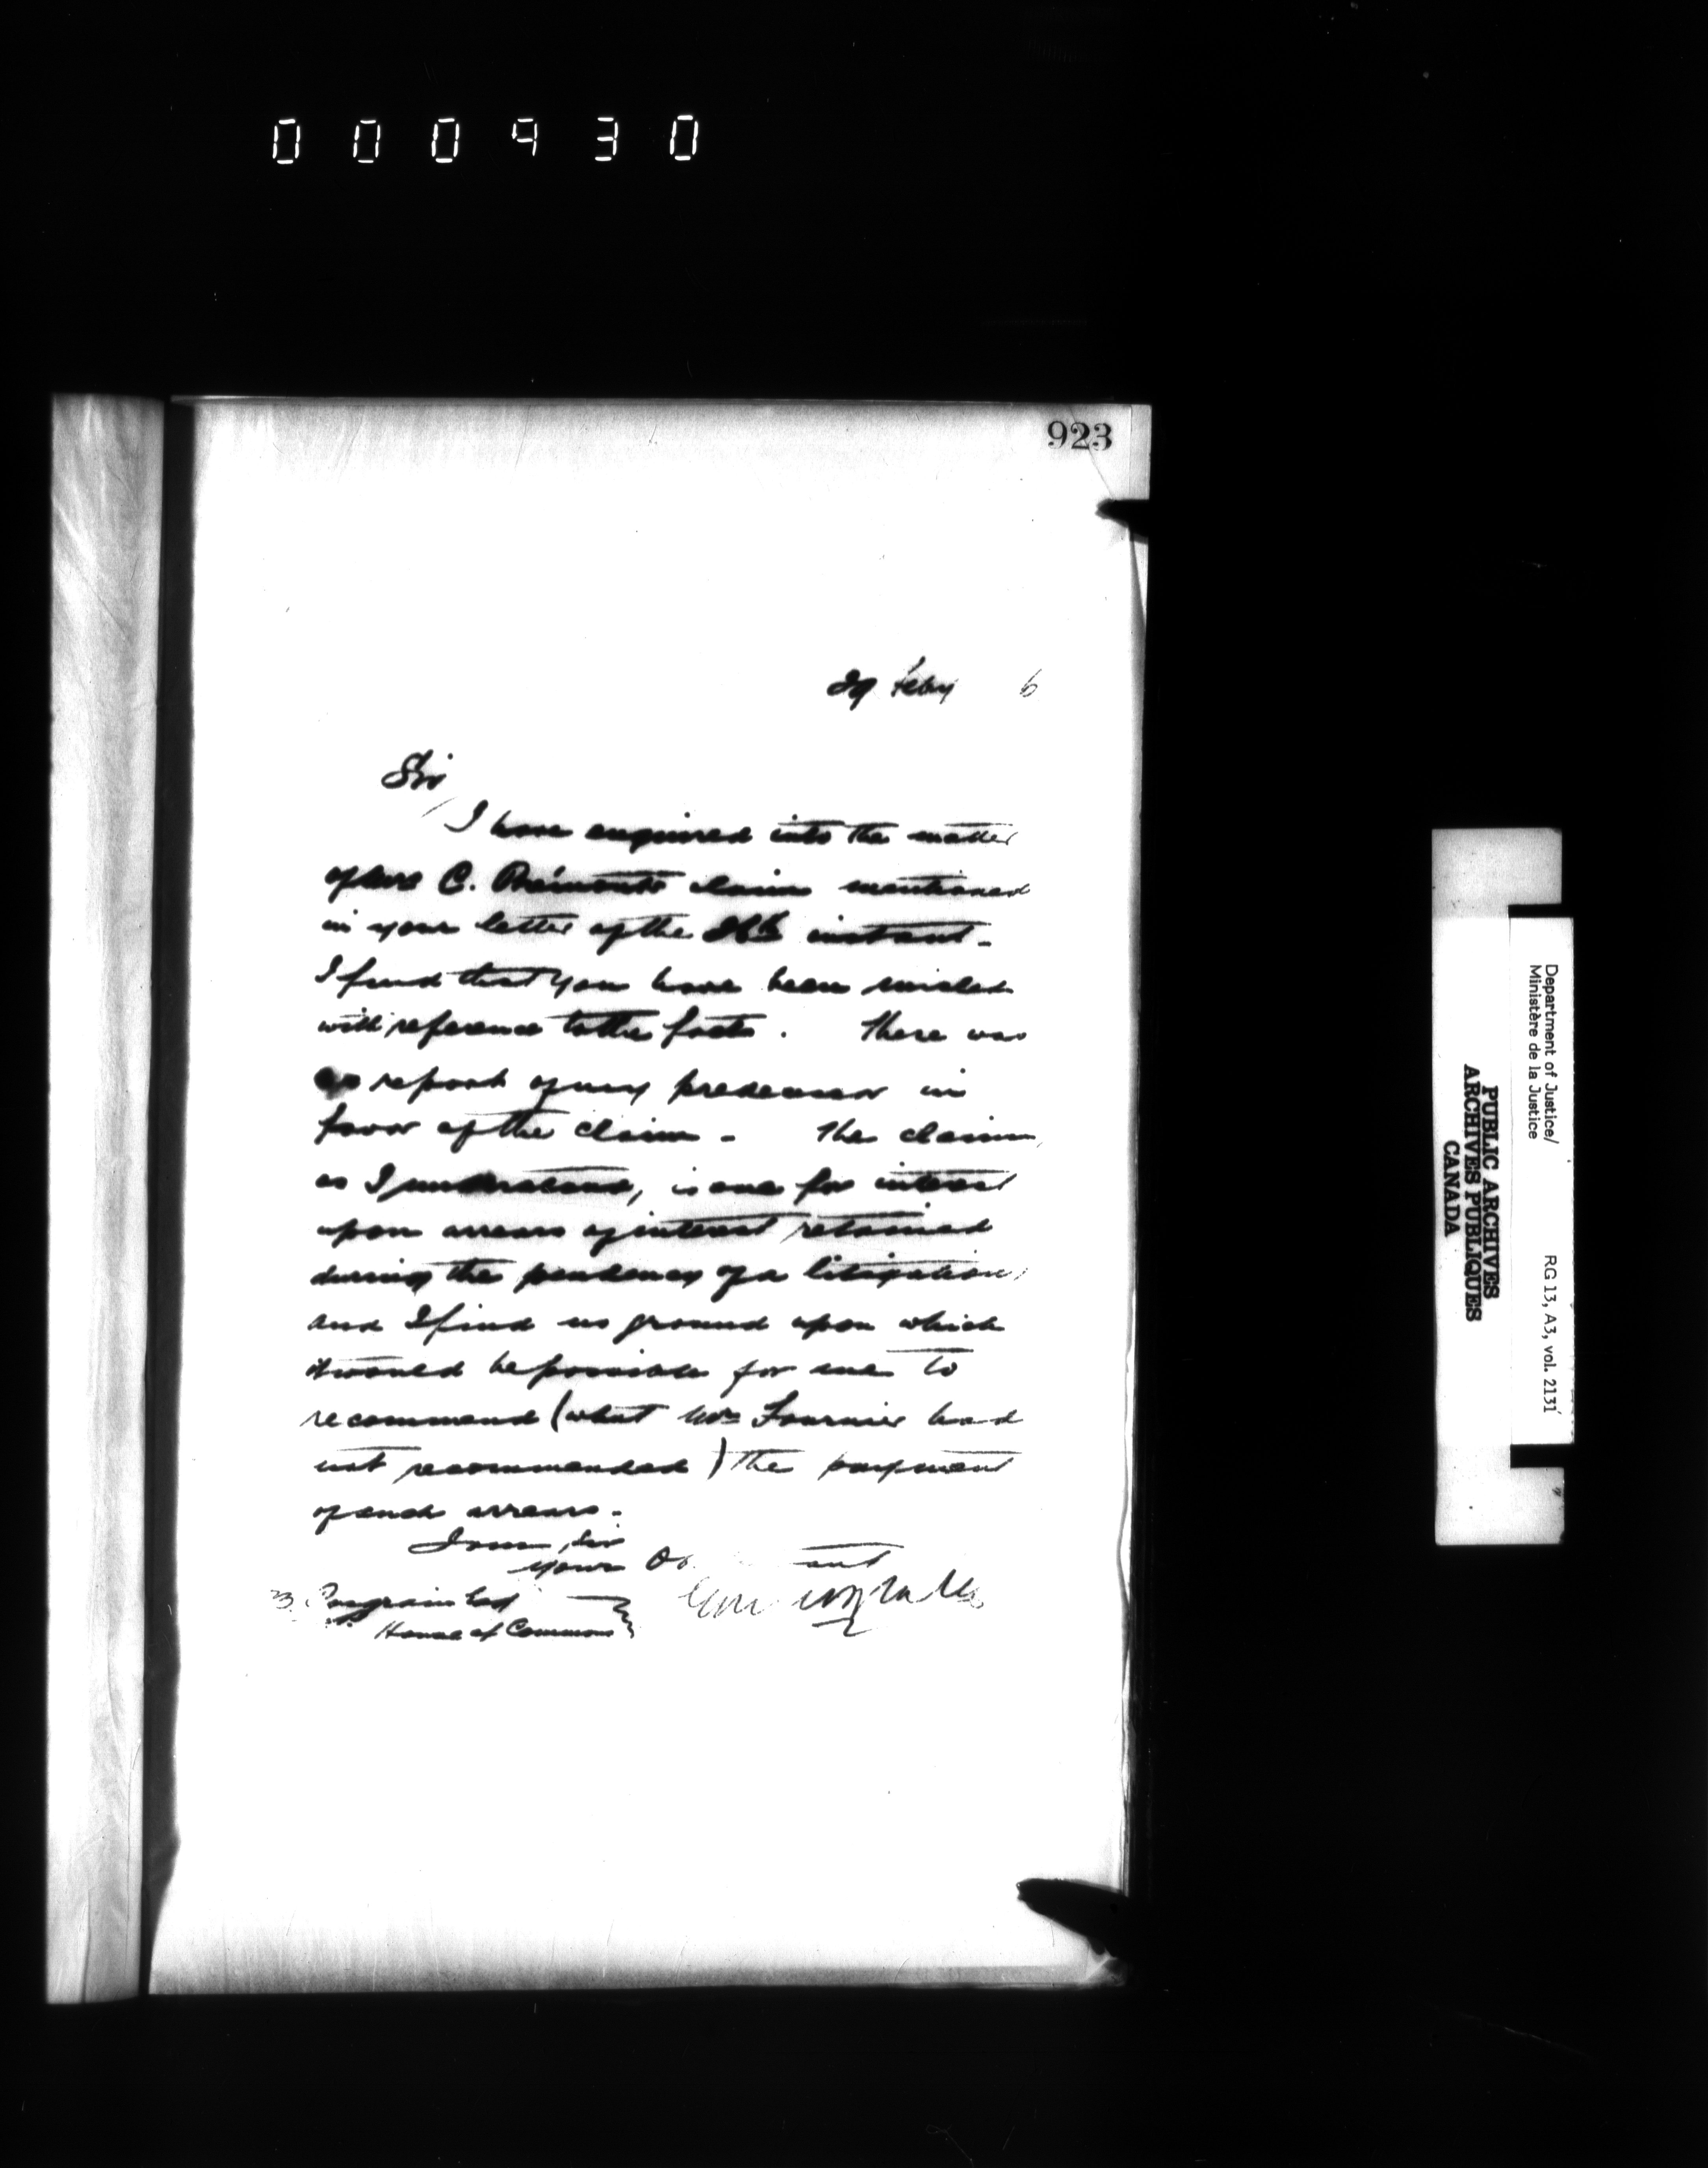 000930
923
29 Feby 6
Sir
I have enquired into the matter
of Mr C. claim mentioned
in your letter of the instant -
I find that you have been misled
with reference to the facts. There was
no report of my predecessor in
favor of the claim - The claim,
as I understand, is one for interest
upon arrears of interest retained
during the pendency of a litigation,
and I find no ground upon which
it would be possible for me to
recommend (what Mr Fournier had
not recommended) the payment
of such arrears -
I am, Sir
Your
House of Commons
Department of Justice/
Ministère de la Justice
RG 13, A3, vol. 2131
PUBLIC ARCHIVES
ARCHIVES PUBLIQUES
CANADA